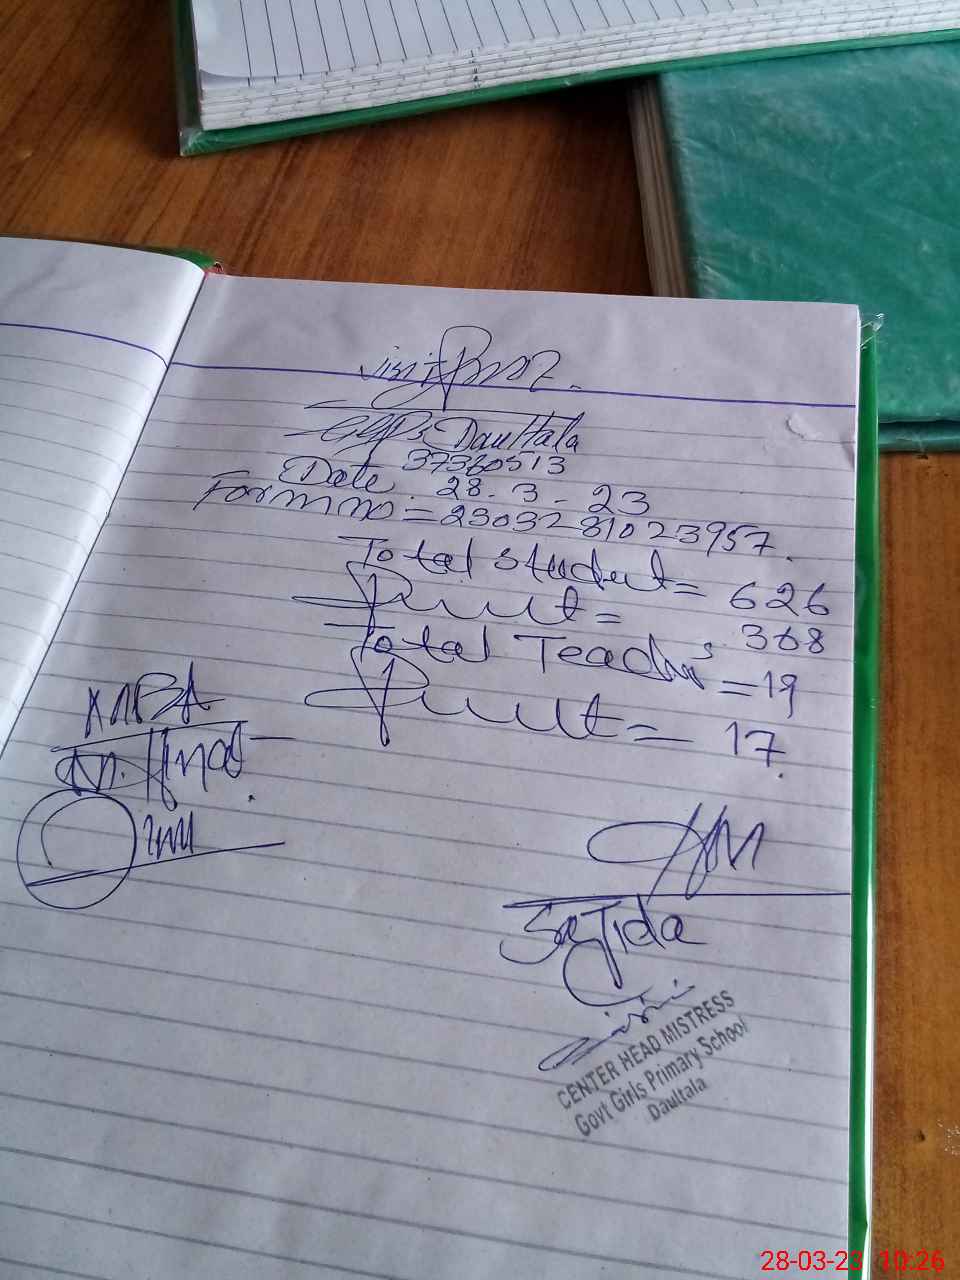 visit
GGPS Daultala
37360513
Date. 28.3-23
Form no = 2303281023957.
Total student = 626
Present = 368
Total Teachers = 19
Present = 17
HM
Sajida
CENTER HEAD MISTRESS
Govt Girls Primary School
Daultala
28-03-23 10:26